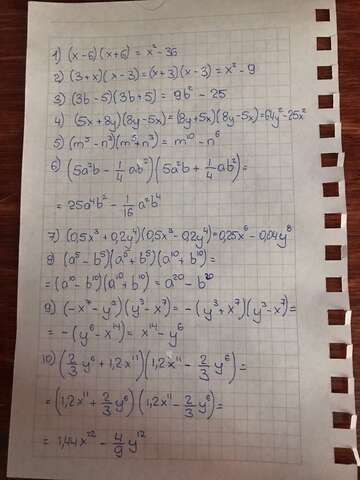 1) (x-6)(x+6) = x² - 36
2) (3+x)(x-3)=(x+3)(x-3) = x² - 9
3) (3b-5)(3b+5) = 9b² - 25
4) (5x+8y)(8y-5x)=(8y+5x)(8y-5x)=64y²-25x²
5) (m⁵-n³)(m⁵+n³) = m¹⁰ - n⁶
6) (5a²b - 1/4 ab²)(5a²b + 1/4 ab²)=
= 25a⁴b² - 1/16 a²b⁴
7) (0,5x³+0,2y⁴)(0,5x³-0,2y⁴)=0,25x⁶-0,04y⁸
8) (a⁵-b⁵)(a⁵+b⁵)(a¹⁰+b¹⁰)=
=(a¹⁰-b¹⁰)(a¹⁰+b¹⁰)= a²⁰ - b²⁰
9) (-x⁷-y³)(y³-x⁷) = -(y³+x⁷)(y³-x⁷)=
= -(y⁶-x¹⁴) = x¹⁴ - y⁶
10) (2/3 y⁶ + 1,2x¹¹)(1,2x¹¹ - 2/3 y⁶)=
=(1,2x¹¹ + 2/3 y⁶)(1,2x¹¹ - 2/3 y⁶)=
= 1,44x²² - 4/9 y¹²